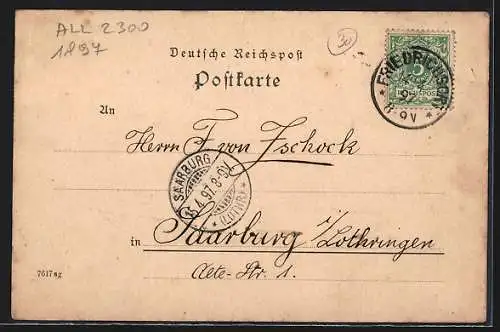 ALL 2300
1897
30
Deutsche Reichspost
Postkarte
FRIEDRICHSORT
8-9V
An
Herrn F. von Zschock
SAARBURG
4.97. 8-9V
(LOTHR)
in Saarburg i/Lothringen
Alte-Str. 1.
7617 ag